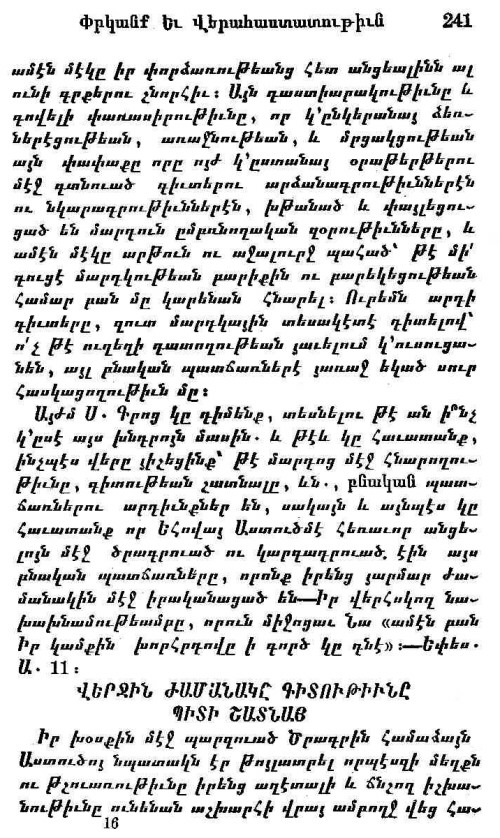 Փրկանք Եւ Վերահաստատութիւն 241
ամէն մէկը իր փորձառութեանց հետ անցեալինն ալ
ունի գրքերու շնորհիւ։ Այն դաստիարակութիւնը և
գովելի փառասիրութիւնը, որ կ՚ընկերանայ ձեռ-
ներէցութեան, առաջնութեան, և մրցակցութեան
այն փափաքը որը ոյժ կ՚ըստանայ օրաթերթերու
մէջ գտնուած գիւտերու արձանագրութիւններէն
ու նկարագրութիւններէն, խթանած և փայլեցու-
ցած են մարդուն ըմբռնողական զօրութիւնները, և
ամէն մէկը արթուն ու աչալուրջ պահած՝ թէ մի՛
գուցէ մարդկութեան բարիքին ու բարեկեցութեան
համար բան մը կարենան հնարել։ Ուրեմն արդի
գիւտերը, զուտ մարդկային տեսակէտէ դիտելով՝
ո՛չ թէ ուղեղի դատողութեան յաւելում կ՚ուսուցա-
նեն, այլ բնական պատճառներէ յառաջ եկած սուր
հասկացողութիւն մը։
Այժմ Ս. Գրոց կը դիմենք, տեսնելու թէ ան ի՞նչ
կ՚ըսէ այս խնդրոյն մասին. և թէև կը հաւատանք,
ինչպէս վերը յիշեցինք՝ թէ մարդոց մէջ հնարողու-
թիւնը, գիտութեան շատնալը, ևն., բնական պատ-
ճառներու արդիւնքներ են, սակայն և այնպէս կը
հաւատանք որ Եհովայ Աստուծմէ հեռաւոր անցե-
լոյն մէջ ծրագրուած ու կարգադրուած էին այս
բնական պատճառները, որոնք իրենց յարմար ժա-
մանակին մէջ իրականացած են—Իր վերհսկող նա-
խախնամութեամբը, որուն միջոցաւ Նա «ամէն բան
Իր կամքին խորհրդովը ի գործ կը դնէ»։—Եփես.
Ա. 11։
ՎԵՐՋԻՆ ԺԱՄԱՆԱԿԸ ԳԻՏՈՒԹԻՒՆԸ
ՊԻՏԻ ՇԱՏՆԱՅ
Իր խօսքին մէջ պարզուած Ծրագրին համաձայն
Աստուծոյ նպատակն էր թոյլատրել որպէսզի մեղքն
ու թշուառութիւնը իրենց աղէտալի և ճնշող իշխա-
նութիւնը ունենան աշխարհի վրայ ամբողջ վեց հա-
16